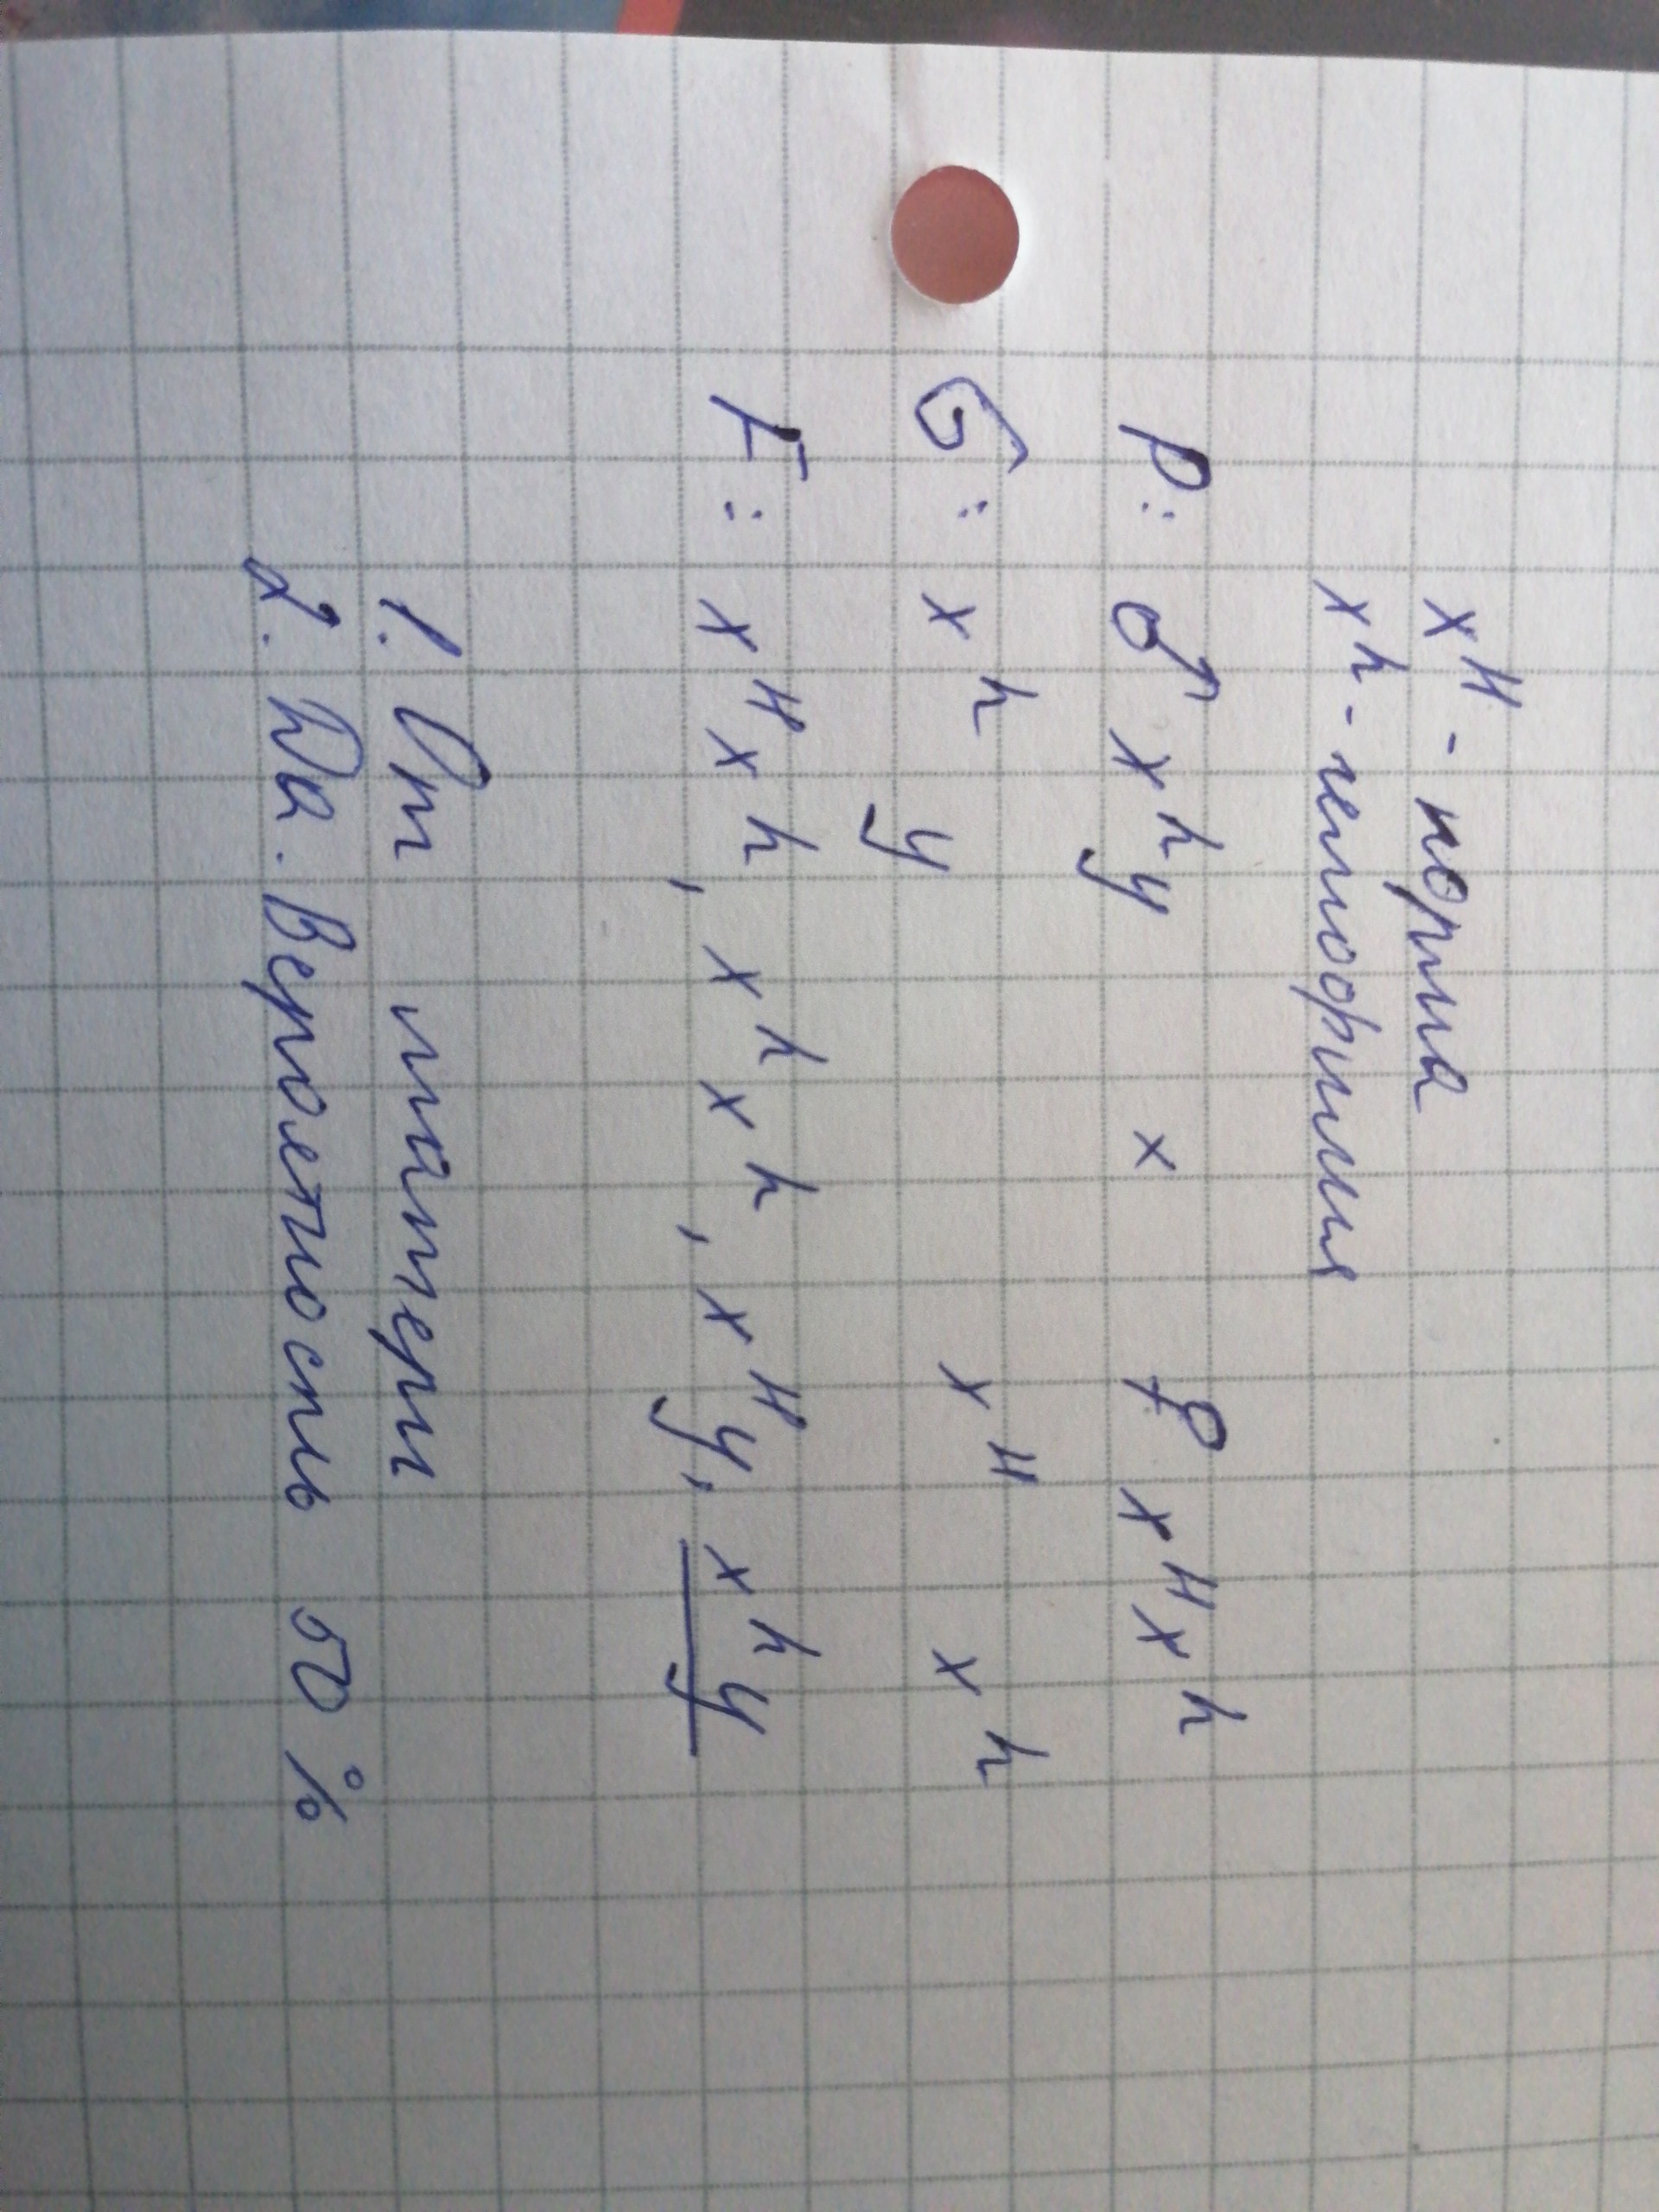 x^H - норма
x^h - гемофилия
P: ♂ x^h y x ♀ x^H x^h
G: x^h y x^H x^h
F: x^H x^h, x^h x^h, x^H y, x^h y
1. От матери
2. Да. Вероятность 50 %